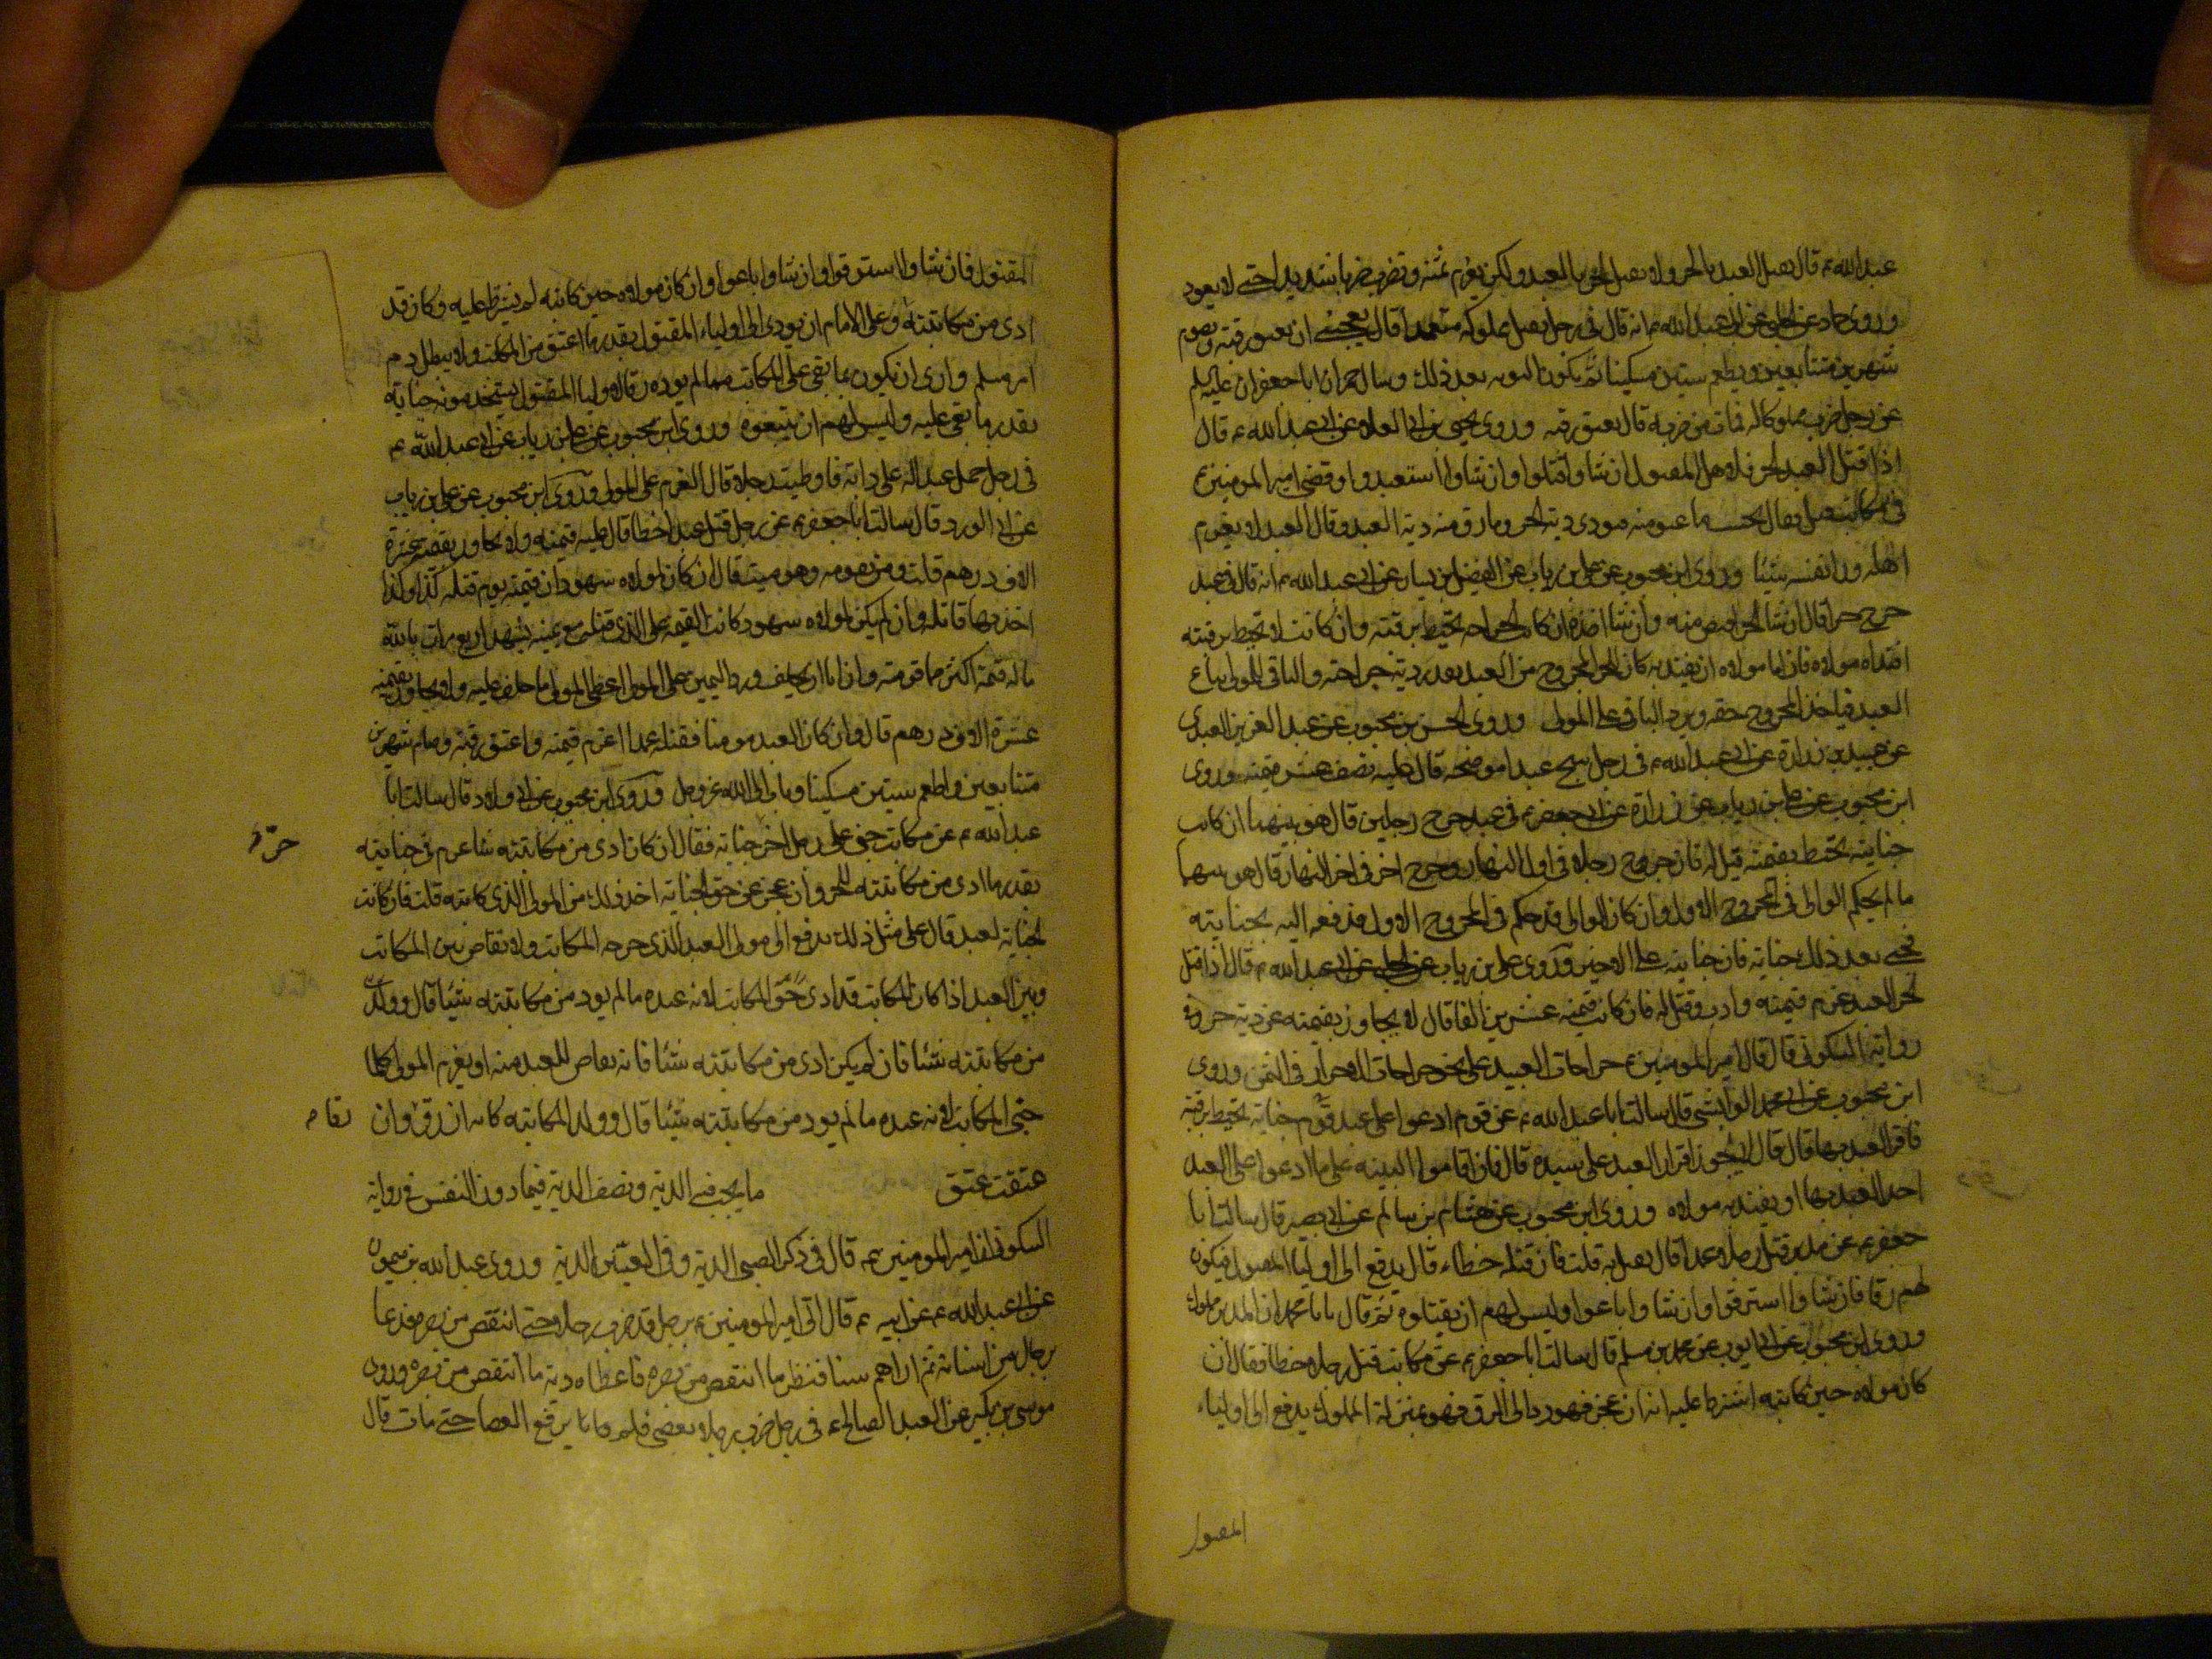 عبد الله ء قال يقتل العبد بالحر ولا يقتل الحر بالعبد ولكن يغرم ثمنه ويضرب ضربا شديدا حتى لا يعود
وروى حماد عن الحلبي عن ابي عبد الله ء انه قال في رجل يقتل مملوكه متعمدا قال يعجبني ان يعتق رقبة ويصوم
شهرين متتابعين ويطعم ستين مسكينا ثم يكون التوبة بعد ذلك وسال حمران ابا جعفر عليه السلم
عن رجل ضرب مملوكا له فمات من ضربه قال يعتق رقبة وروى يحيى بن ابي العلاء عن ابي عبد الله ء قال
اذا قتل العبد الحر فلاهل المقتول ان شاوا قتلوا وان شاوا استعبدوا وقضى امير المومنين ء
في مكاتب قتل قال يحسب ما عتق منه فيودى دية الحر وما رق منه دية العبد وقال العبد لا يغرم
اهله وراء نفسه شيئا وروى ابن محبوب عن علي بن رياب عن الفضيل بن يسار عن ابي عبد الله ء انه قال في عبد
جرح حرا قال ان شا الحر اقتص منه وان شا اخذه ان كانت الجراحة تحيط برقبته وان كانت لا تحيط برقبته
افتداه مولاه فان ابا مولاه ان يفتديه كان للحر المجروح من العبد بقدر دية جراحته والباقي للمولى يباع
العبد فياخذ المجروح حقه ويرد الباقي على المولى وروى الحسن بن محبوب عن عبد العزيز العبدي
عن عبيد بن زرارة عن ابي عبد الله ء في رجل شج عبدا موضحة قال عليه نصف عشر قيمته وروى
ابن محبوب عن علي بن رياب عن زرارة عن ابي جعفر ء في عبد جرح رجلين قال هو بينهما ان كانت
جنايته تحيط بقيمته قيل له فان جرح رجلا في اول النهار وجرح اخر في اخر النهار قال هو بينهما
ما لم يحكم الوالي في المجروح الاول وان كان الوالي قد حكم في المجروح الاول فدفعه اليه بجنايته
فجنى بعد ذلك جناية فان جنايته على الاخير وروى علي بن رياب عن الحلبي عن ابي عبد الله ء قال اذا قتل
الحر العبد غرم قيمته وادب وقتل له فان كانت قيمته عشرين الفا قال لا يجاوز بقيمته عن دية حر وفي
رواية السكوني قال قال امير المومنين ء جراحات العبيد على نحو جراحات الاحرار في الثمن وروى
ابن محبوب عن ابي محمد الوابشي قال سالت ابا عبد الله ء عن قوم ادعوا على عبد قوم جناية تحيط برقبته
فاقر العبد بها قال قال لا يجوز اقرار العبد على سيده قال فان اقاموا البينة على ما ادعوا على العبد
اخذ العبد بها او يفتديه مولاه وروى ابن محبوب عن هشام بن سالم عن ابي بصير قال سالت ابا
جعفر ء عن مدبر قتل رجلا عمدا قال يقتل به قلت فان قتله خطاء قال يدفع الى اوليا المقتول فيكون
لهم رقا فان شاوا استرقوا وان شاوا باعوا وليس لهم ان يقتلوه ثم قال يا با محمد ان المدبر مملوك
وروى ابن محبوب عن ابي ايوب عن محمد بن مسلم قال سالت ابا جعفر ء عن مكاتب قتل رجلا خطا فقال ان
كان مولاه حين كاتبه اشترط عليه انه ان عجز فهو رد الى الرق فهو بمنزلة المملوك يدفع الى اولياء
المقتول
المقتول فان شاوا استرقوا وان شاوا باعوا وان كان مولاه حين كاتبه لم يشترط عليه وكان قد
ادى من مكاتبته وعلى الامام ان يودى الى اولياء المقتول بقدر ما اعتق من المكاتب ولا يبطل دم
امر مسلم وارى ان يكون ما بقي على المكاتب مما لم يوده رقا لاوليا المقتول يستخدمونه حياته
بقدر ما بقي عليه وليس لهم ان يبيعوه وروى ابن محبوب عن علي بن رياب عن ابي عبد الله ء
في رجل حمل عبدا له على دابة فاوطيت رجلا قال الغرم على المولى وروى ابن محبوب عن علي بن رياب
عن ابي الورد قال سالت ابا جعفر ء عن رجل قتل عبدا خطا قال عليه قيمته ولا يجاوز بقيمته عشرة
الاف درهم قلت ومن يقومه وهو ميت قال ان كان لمولاه شهود ان قيمته يوم قتله كذا وكذا
اخذ بها قاتله وان لم يكن لمولاه شهود كانت القيمة على الذي قتله مع يمينه يشهد اربع مرات بالله
ما له قيمة اكثر مما قومته وان ابا ان يحلف ورد اليمين على المولى اعطى المولى ما حلف عليه ولا يجاوز بقيمته
عشرة الاف درهم قال وان كان العبد مومنا فقتله عمدا اغرم قيمته واعتق رقبة وصام شهرين
متتابعين واطعم ستين مسكينا وتاب الى الله عز وجل وروى ابن محبوب عن ابي ولاد قال سالت ابا
عبد الله ء عن مكاتب جنى على رجل اخر جناية فقال ان كان ادى من مكاتبته شيا غرم في جنايته
حرّ
بقدر ما ادى من مكاتبته للحر وان عجز عن حق الجناية اخذ ذلك من المولى الذي كاتبه قلت فان كانت
الجناية لعبد قال على مثل ذلك يدفع الى مولى العبد الذي جرحه المكاتب ولا تقاص بين المكاتب
وبين العبد اذا كان المكاتب قد ادى حق المكاتب لانه عبده ما لم يود من مكاتبته شيئا قال وولد
من مكاتبته شيئا فان لم يكن ادى من مكاتبته شيئا فانه يقاص للعبد منه او يغرم المولى كلما
جنى المكاتب لانه عبده ما لم يود من مكاتبته شيئا قال وولد المكاتبة كامه ان رقت رق وان
عتقت عتق ما يجب فيه الدية ونصف الدية فيما دون النفس في رواية
السكوني ان امير المومنين ء قال في ذكر الصبي الدية وفي العنين الدية وروى عبد الله بن ميمون
عن ابي عبد الله ء عن ابيه ء قال اتي امير المومنين ء برجل قد ضرب رجلا حتى انتقص من بصره فدعا
برجال من اسنانه ثم اراهم شيا فنظر ما انتقص من بصره فاعطاه دية ما انتقص من بصره وروى
موسى بن بكير عن العبد الصالح ء في رجل ضرب رجلا بعصى فلم يرفع العصا حتى مات قال